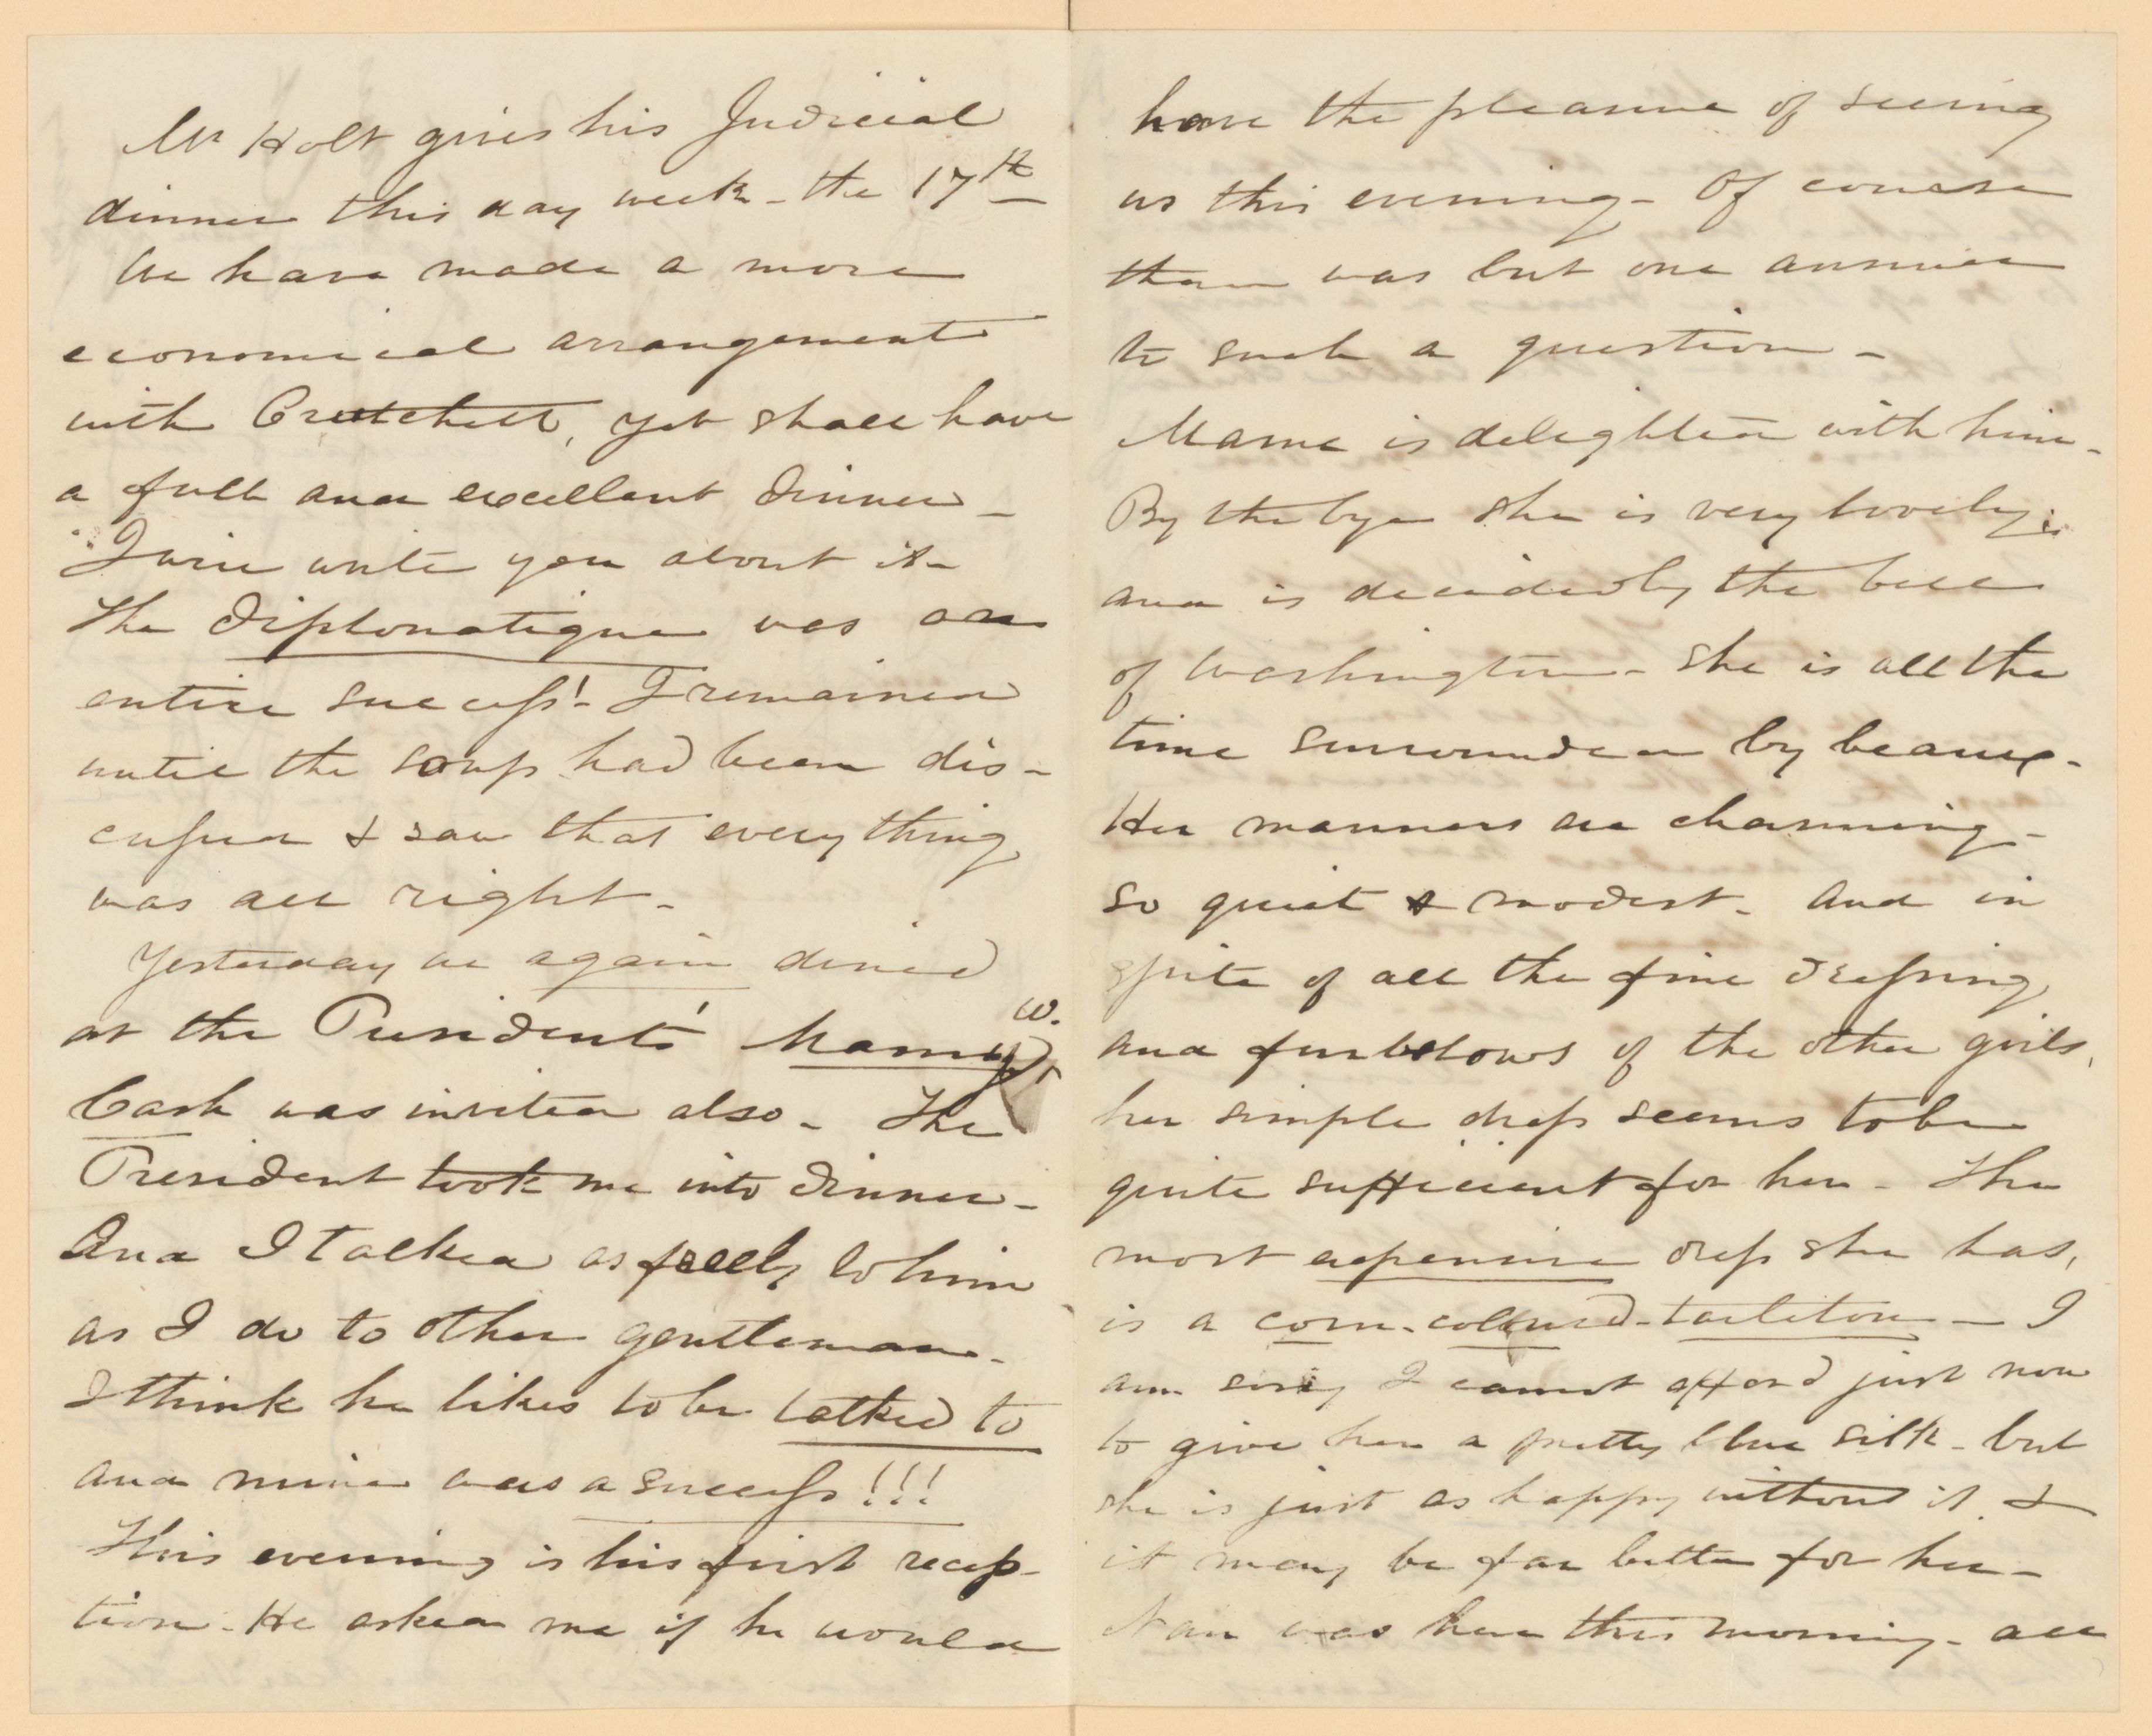 Mr Holt gives his Judicial
dinner this day week - the 17th
We have made a more
economical arrangement
with Crutchett, yet shall have
a full and excellent dinner -
I will write you about it -
The Diplomatique was an
entire success! - I remained
until the soup had been dis-
cussed & saw that everything
was all right -
Yesterday we again dined
at the President's Mamie W.
Cash was invited also - The
President took me into dinner -
And I talked as freely to him
as I do to other gentleman -
I think he likes to be talked to
and mine was a success!!!
This evening is his first recep-
tion - He asked me if he would
have the pleasure of seeing
us this evening - Of course
there was but one answer
to such a question -
Mame is delighted with him -
By the bye she is very lovely;
and is decidedly the bell
of Washington - She is all the
time surrounded by beaux -
Her manners are charming -
so quiet & modest - And in
spite of all the fine dressing
and furbelows of the other girls,
her simple dress seems to be
quite sufficient for her - The
most expensive dress she has,
is a corn-coloured-tarleton - I
am sorry I cannot afford just now
to give her a pretty blue silk - but
she is just as happy without it &
it may be far better for her -
Nan was here this morning - all